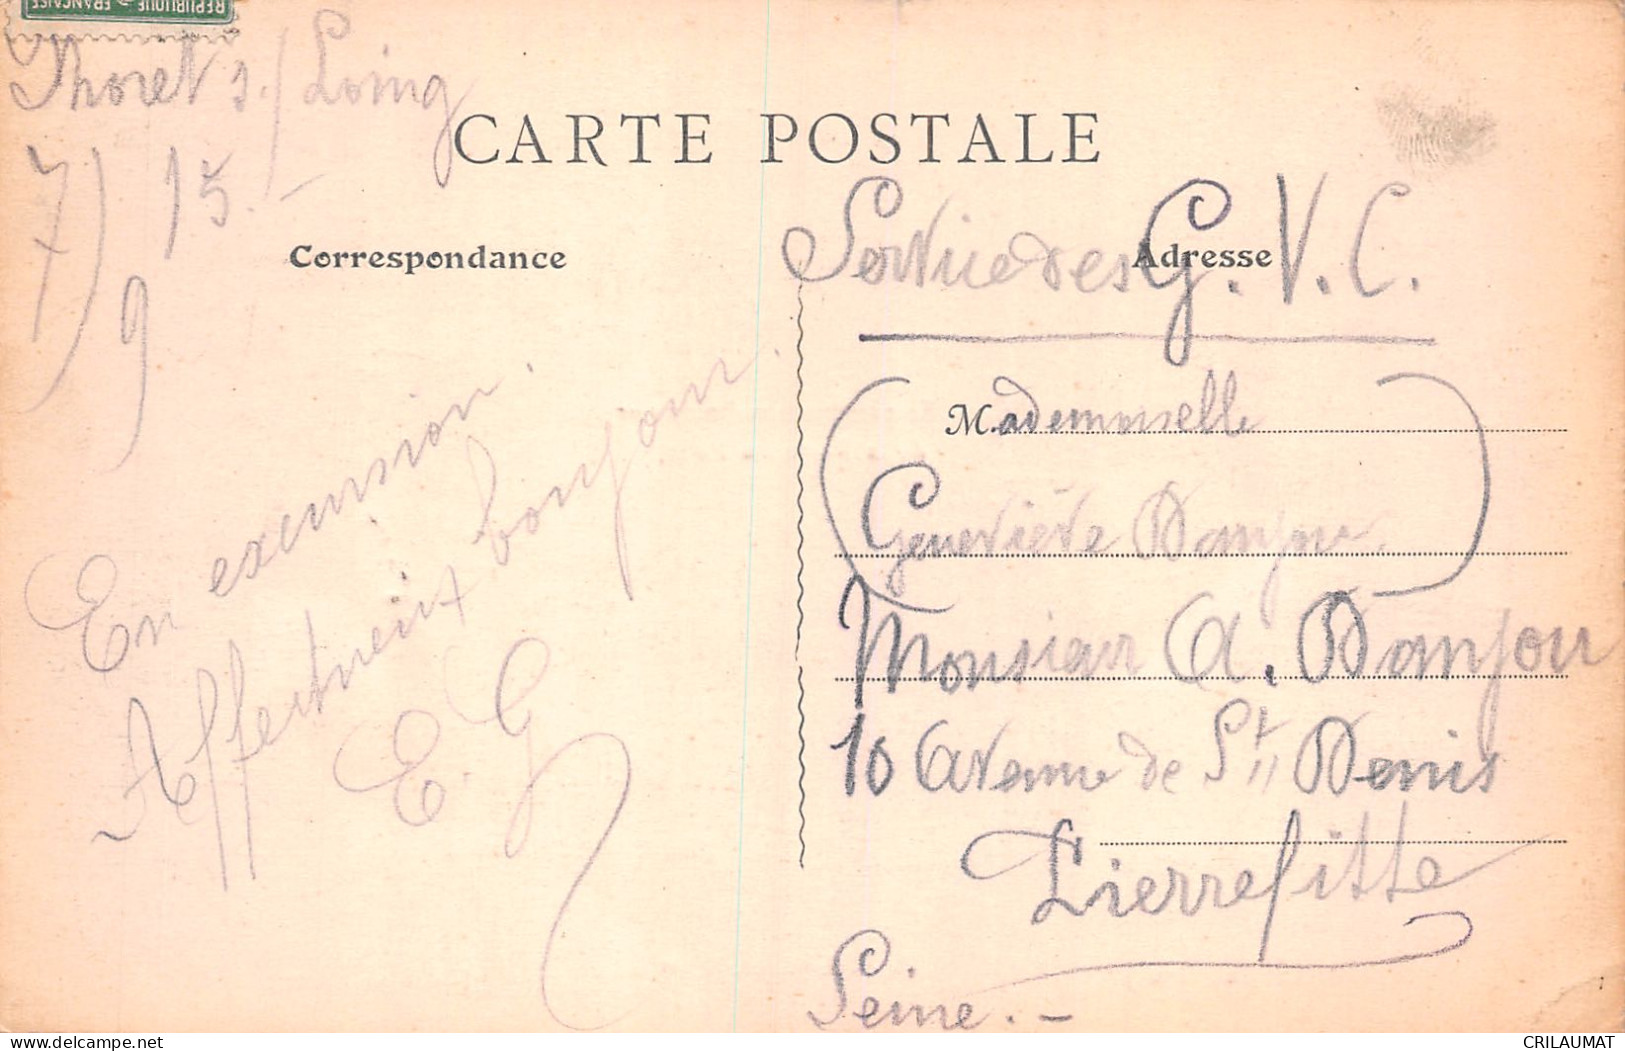 REPUBLIQUE FRANÇAISE
Thoret s./Loing
7/9 15.-
CARTE POSTALE
Correspondance
Adresse
En excursion.
Affectueux bonjour.
E. G
Service des G. V. C.
(Mademoiselle
Geneviève Danjou.)
Monsieur A. Danjou
10 Avenue de St Denis
Pierrefitte
Seine.-
CRILAUMAT